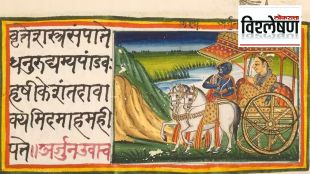 वृत्तेशस्त्रसंपाते
धनुरुद्यम्यपांडवः
हृषीकेशंतदावा
क्यमिदमाहमही
पते॥अर्जुनउवाच
लोकसत्ता
विश्लेषण